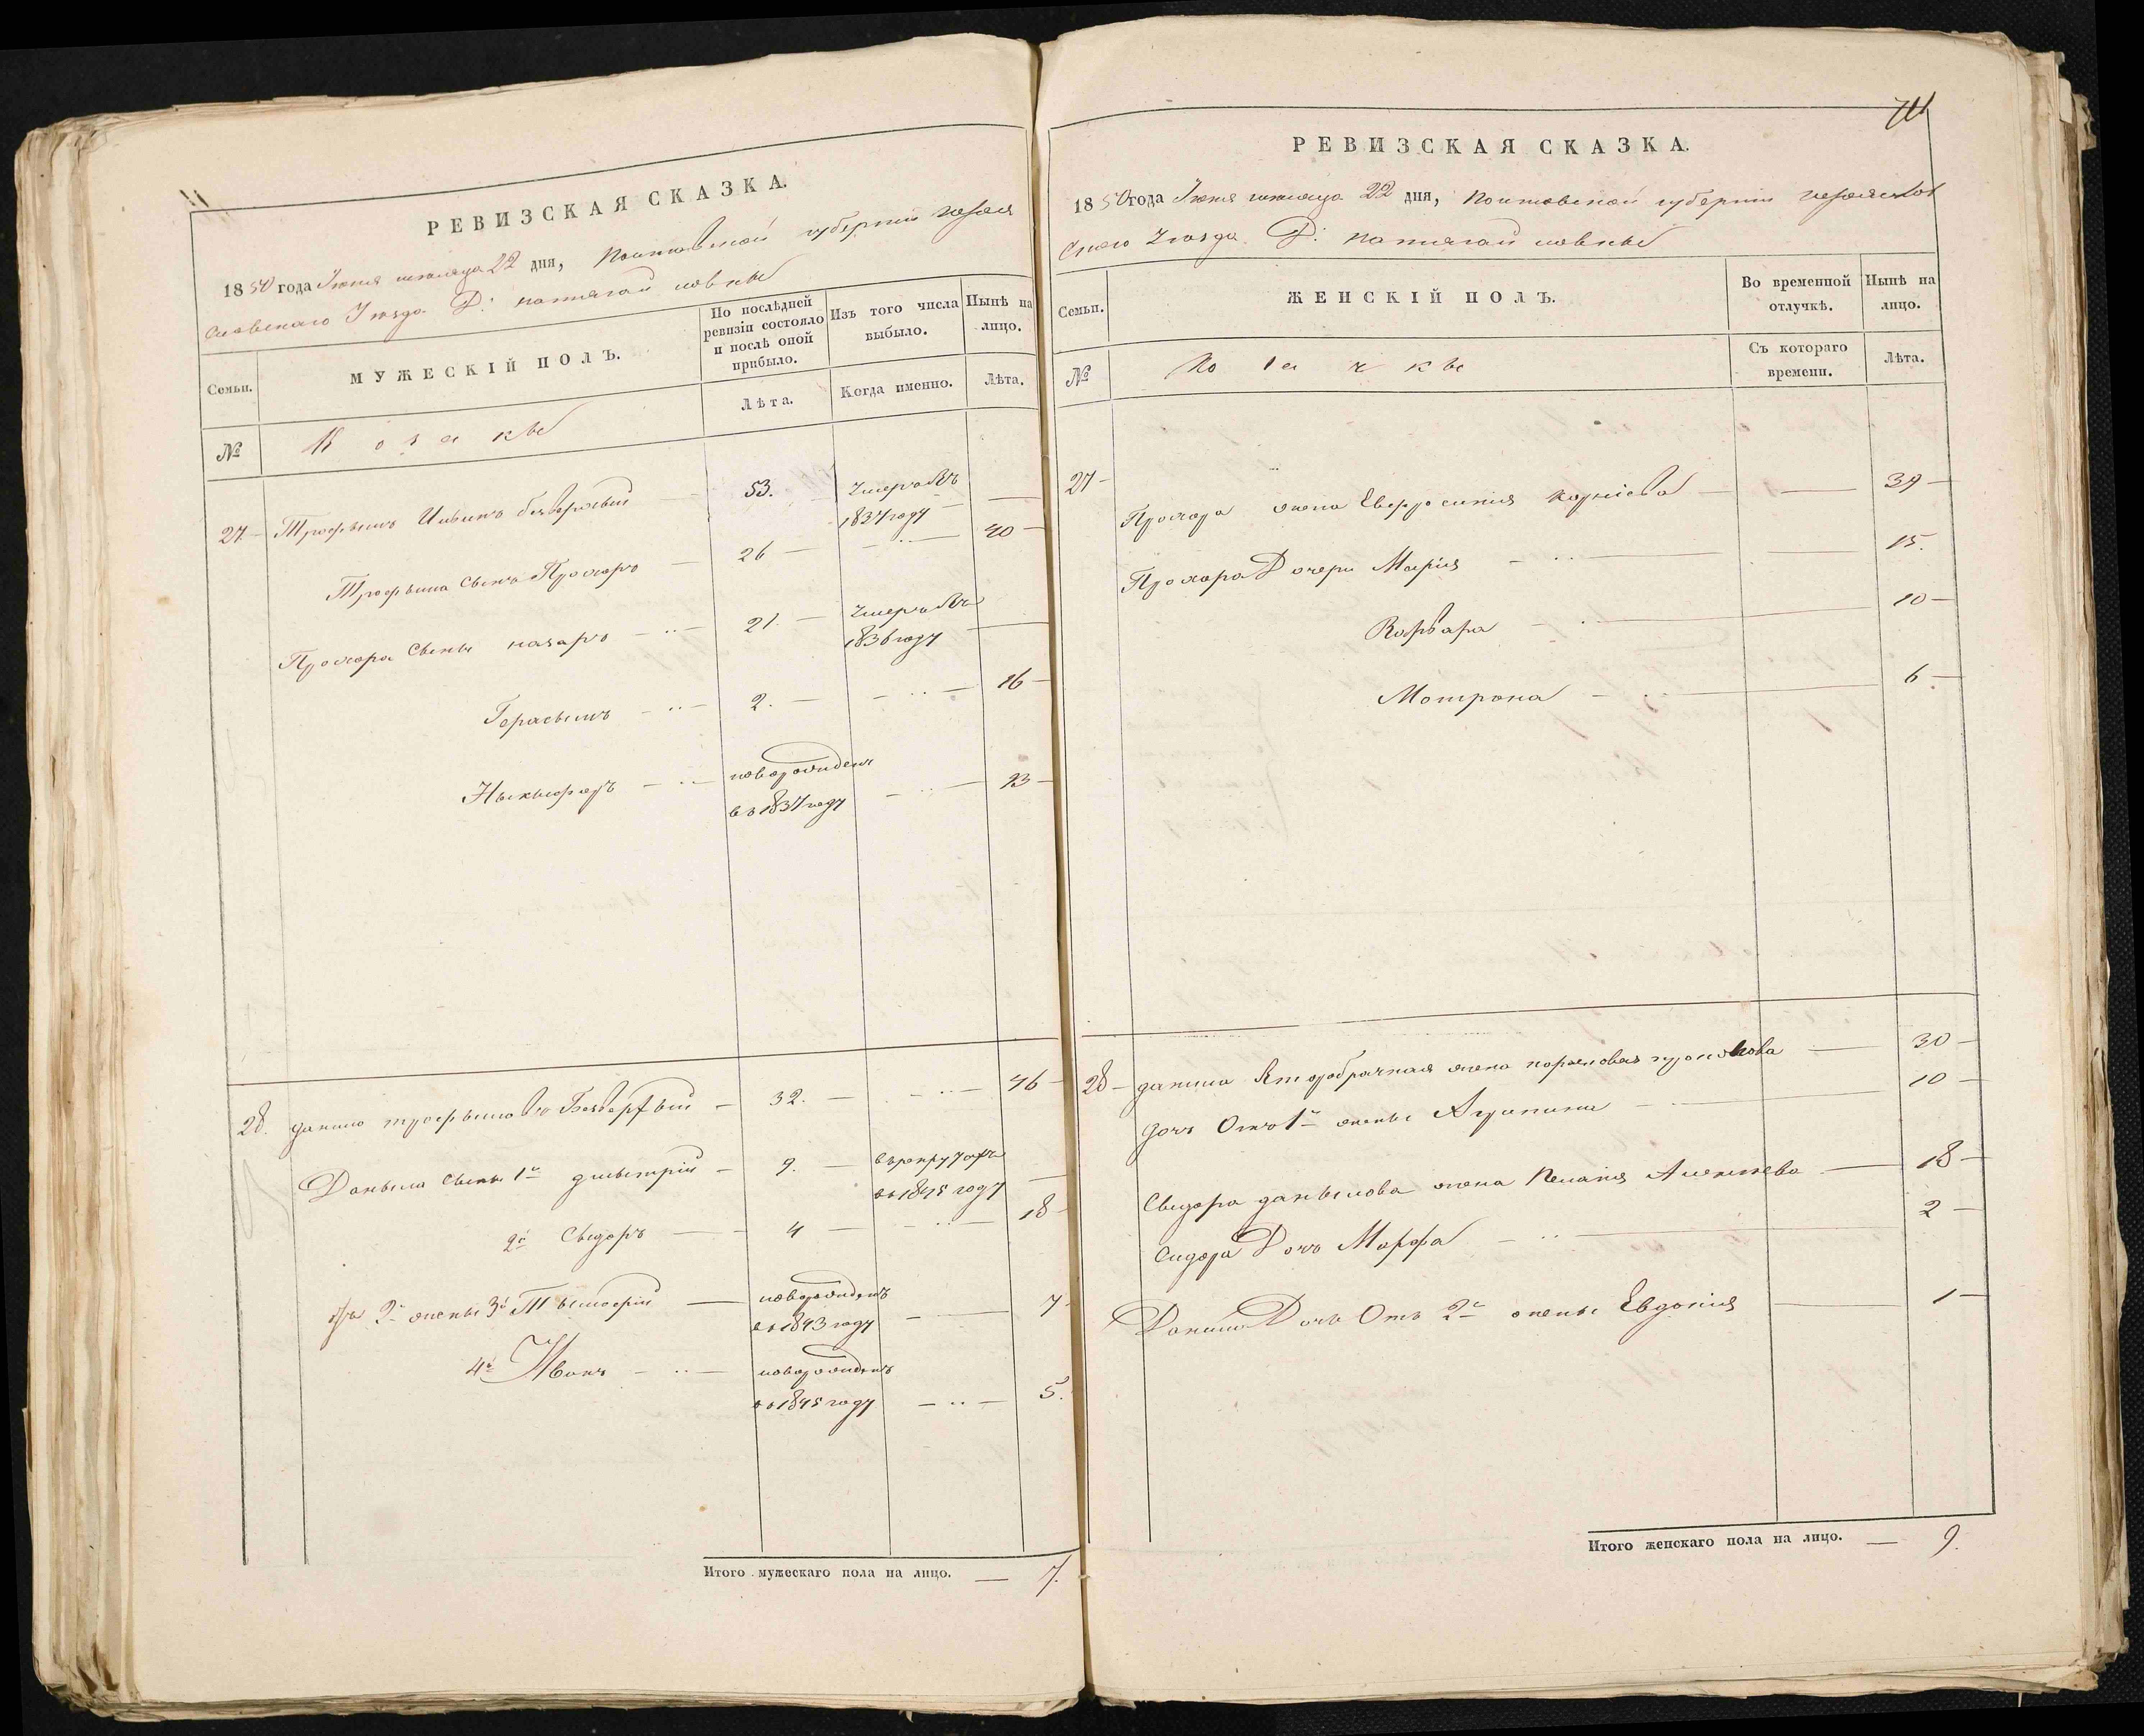 РЕВИЗСКАЯ СКАЗКА.
1850 года Іюня месяца 22 дня, Полтавской губерніи Переяславскаго Уезда Д:
Семьи. МУЖЕСКІЙ ПОЛЪ. По послѣдней ревизіи состояло и послѣ оной прибыло. Изъ того числа выбыло. Нынѣ на лицо.
№ Козаки Лѣта. Когда именно. Лѣта.
27 Трофымъ Ивановъ 53. Умеръ въ 1837 году
Трофыма Сынъ Прохоръ 26 40
Прохора Сыны Назаръ 21 Умеръ въ 1836 году
Герасымъ 2. 16
Ныкыфоръ новорожденъ въ 1837 году 13
28. Данило Трофымовъ 32. 46
Даныла Сыны 1й Дмытрій 9. въ рекруты въ 1845 году
2й Сыдоръ 4 18
2й жены 3й Тымофій новорожденъ въ 1843 году 7
4й Иванъ новорожденъ въ 1845 году 5.
Итого мужескаго пола на лицо. 7.
РЕВИЗСКАЯ СКАЗКА.
1850 года Іюня месяца 22 дня, Полтавской губерніи Переяславскаго Уезда Д:
Семьи. ЖЕНСКІЙ ПОЛЪ. Во временной отлучкѣ. Нынѣ на лицо.
№ Козачки Съ котораго времени. Лѣта.
27 Прохора жена Евфросинія Корніева 39
Прохора Дочери Марія 15.
Варвара 10
Мотрона 6
28 Данила Второбрачная жена 30
Дочь Отъ 1й жены Агрипина 10
Сыдора Данылова жена Пелагія Алексеева 18
Сидора Дочь Марфа 2
Данила Дочь Отъ 2й жены Евдокія 1
Итого женскаго пола на лицо. 9.